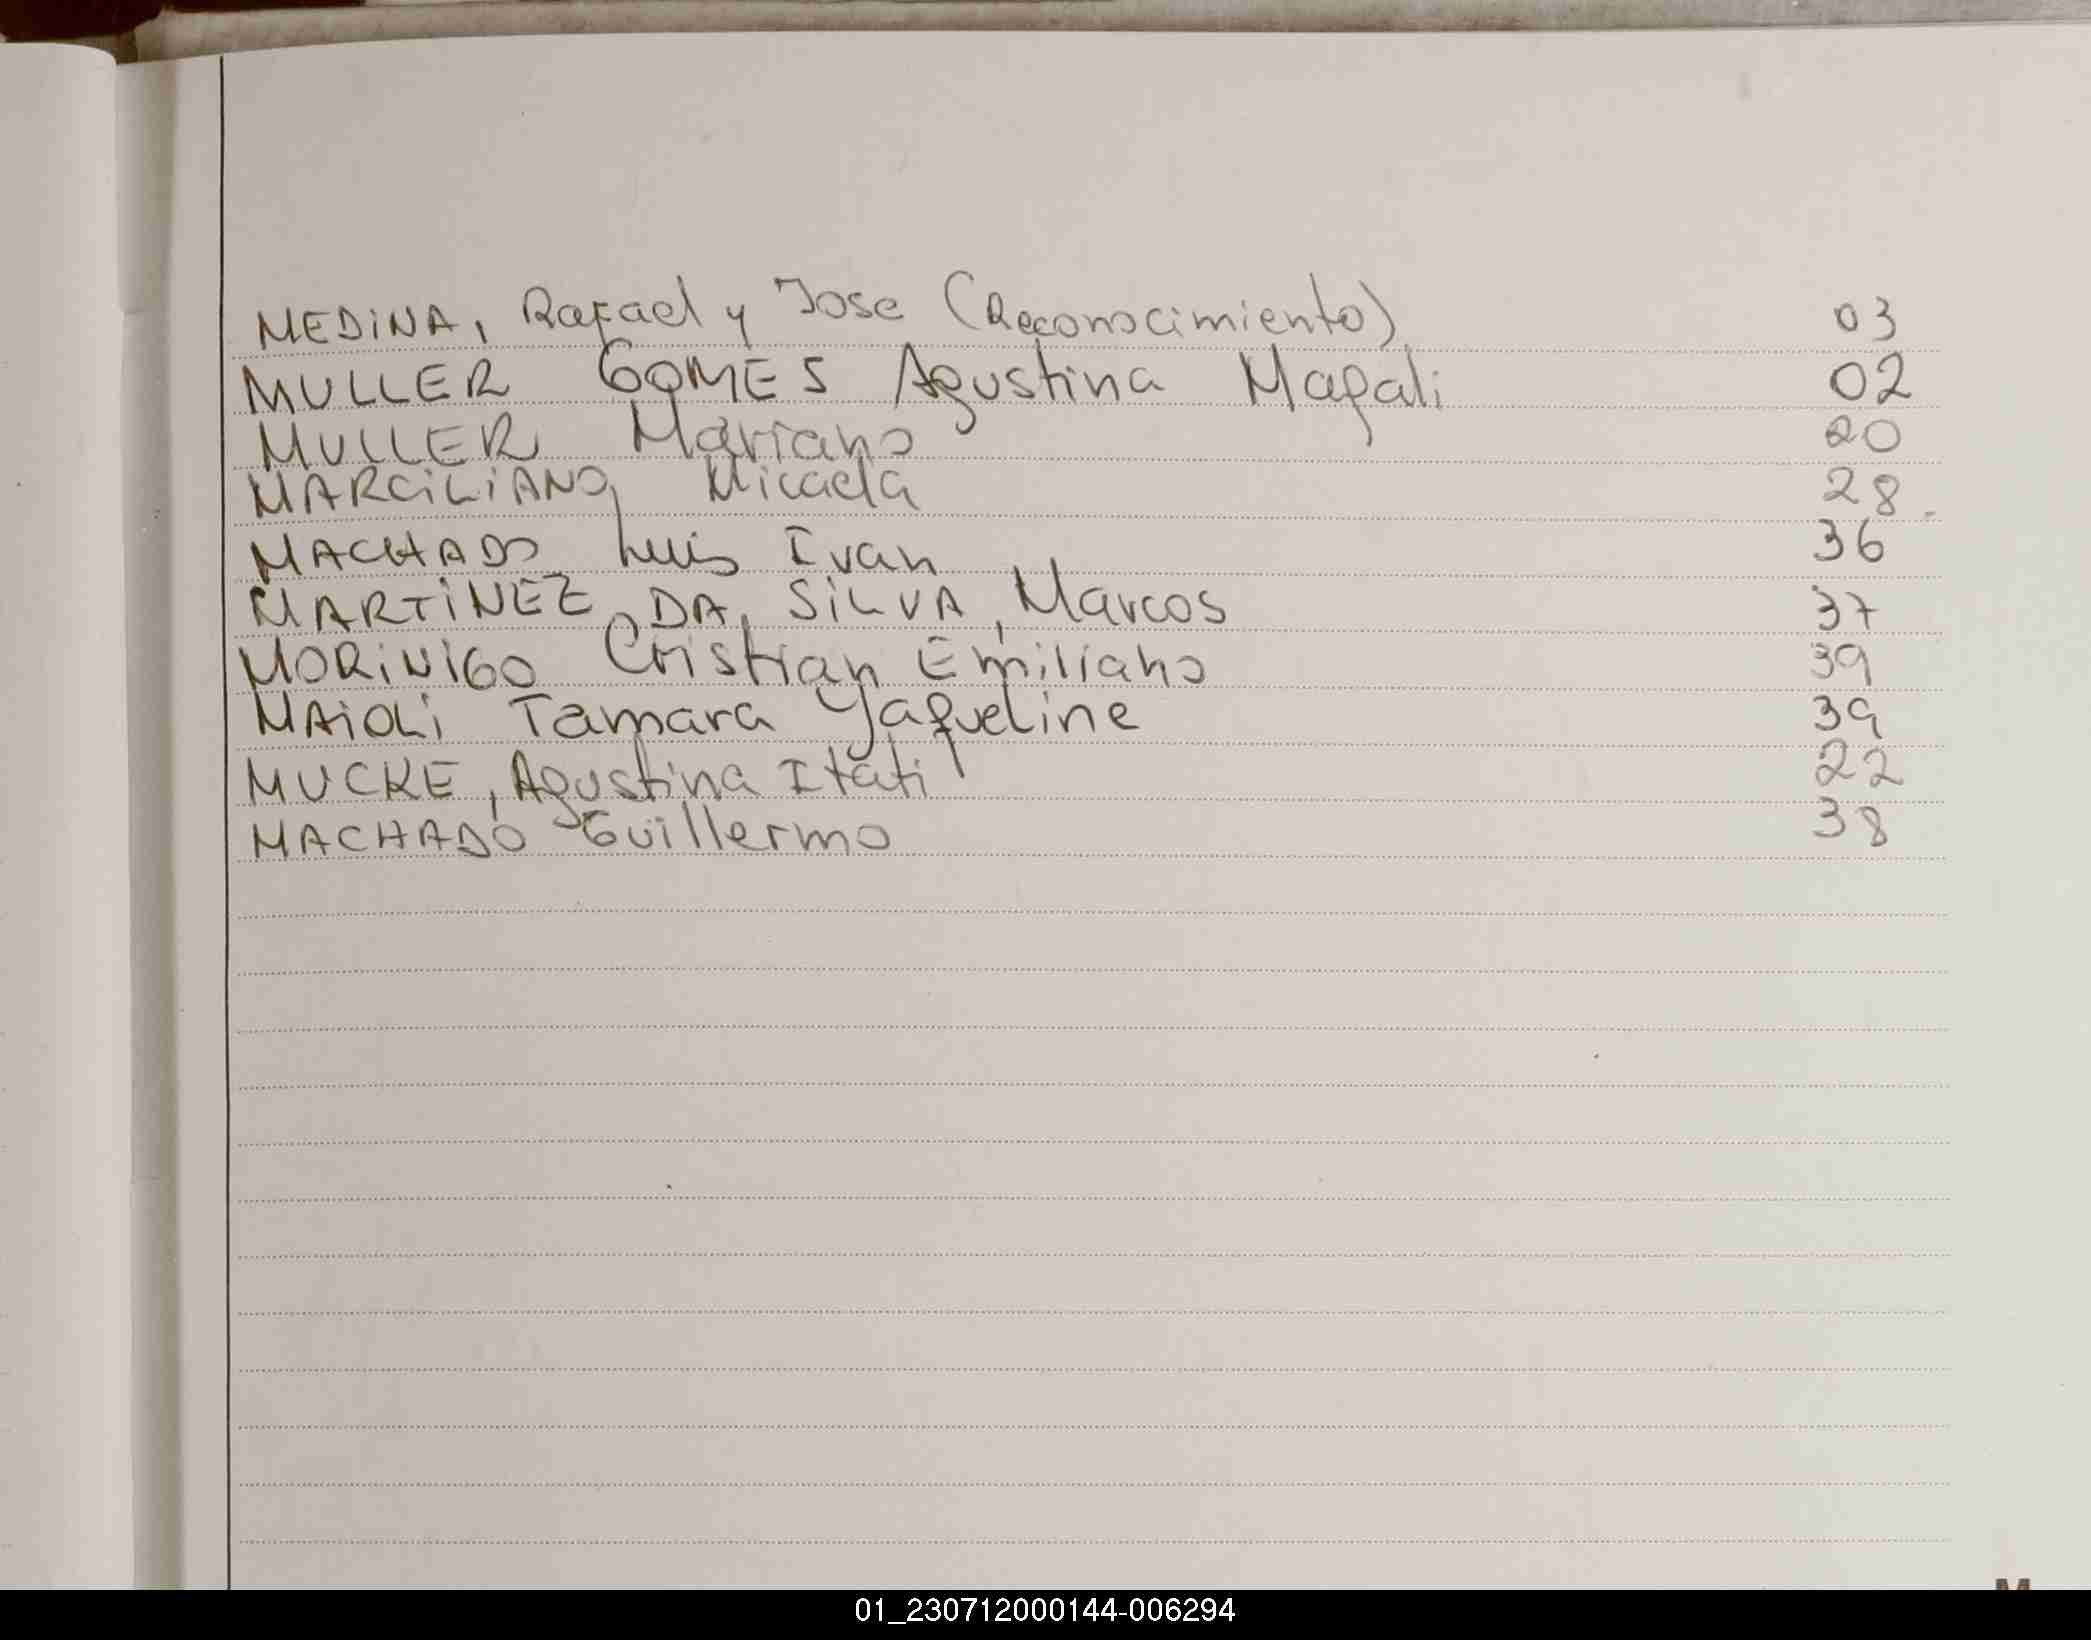 MEDINA, Rafael y Jose (Reconocimiento) 03
MULLER GOMES Agustina Magali 02
MULLER Mariano 20
MARCILIANO, Micaela 28
MACHADO Luis Ivan 36
MARTINEZ DA SILVA, Marcos 37
MORINIGO Cristian Emiliano 39
MAIOLI Tamara Yaqueline 39
MUCKE, Agustina Itati 22
MACHADO Guillermo 38
M
01_230712000144-006294